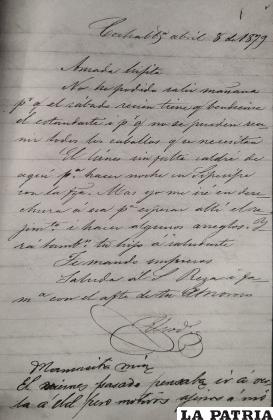 abril 8 de 1879
Amada
No he podido salir mañana
pº q el sabado recien tiene q
el estandarte i pº q no se pueden reu
nir todos los caballos q se necesitan
El lúnes sin falta saldré de
aquí pª hacer noche en
con la fza. Mas yo me iré en dere
chura a esa pª esperar allí el
i hacer algunos arreglos. I
rá tambⁿ tu hijo á saludarte
Saluda al S. Reza i fa
mª con el afto de tu
Mamacita mia
El viernes pasado pensaba ir á ve
la á Ud pero motivos ajenos á mi
LA PATRIA